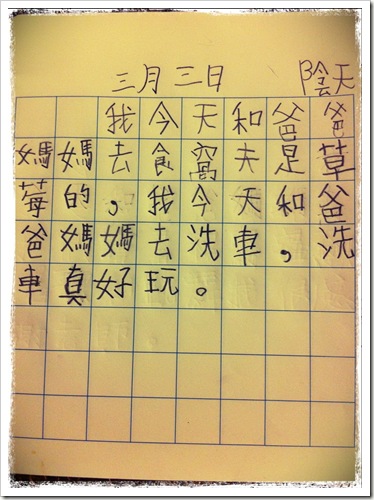 三月三日 陰天
我今天和爸爸
媽媽去食窩夫是草
莓的，我今天和爸
爸媽媽去洗車，洗
車真好玩。